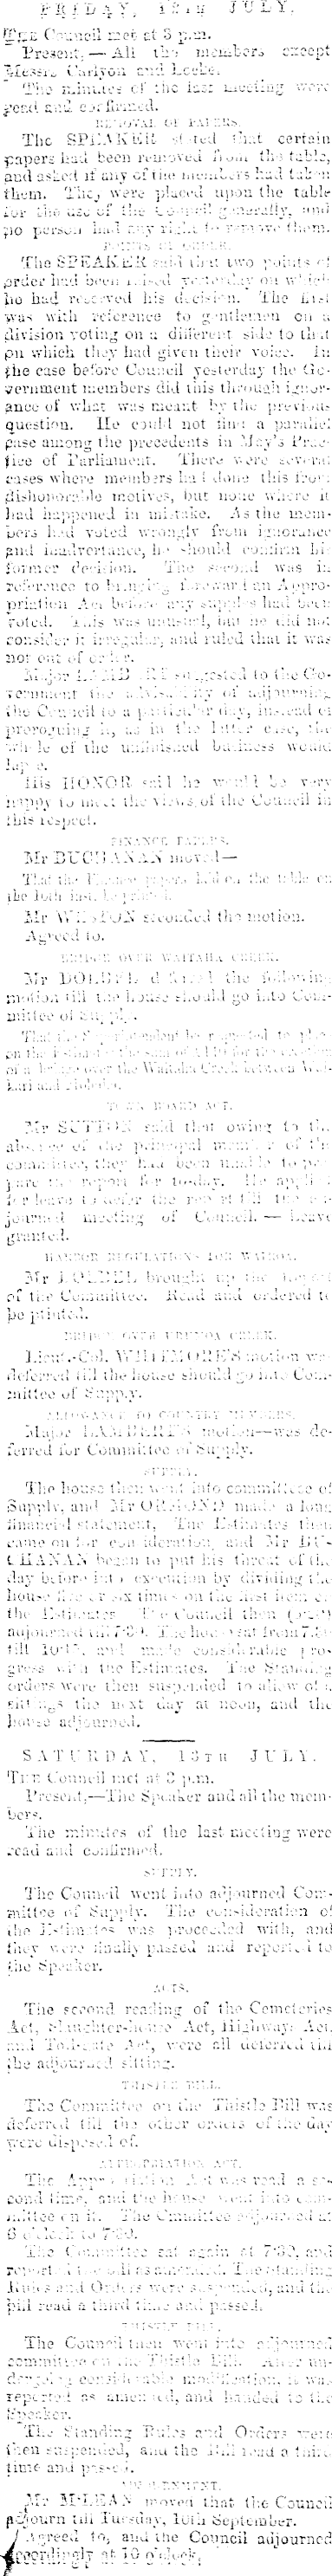 FRIDAY, 12TH JULY.
THE Council met at 3 p.m.
Present,—All the members except
Messrs Carlyon and Locke.
The minutes of the last meeting were
read and confirmed.
REMOVAL OF PAPERS.
The SPEAKER stated that certain
papers had been removed from the table,
and asked if any of the members had taken
them. They were placed upon the table
for the use of the Council generally, and
no person had any right to remove them.
POINTS OF ORDER.
The SPEAKER said that two points of
order had been raised yesterday on which
he had reserved his decision. The first
was with reference to gentlemen on a
division voting on a different side to that
on which they had given their voice. In
the case before Council yesterday the Go-
vernment members did this through ignor-
ance of what was meant by the previous
question. He could not find a parallel
case among the precedents in May's Prac-
tice of Parliament. There were several
cases where members had done this from
dishonorable motives, but none where it
had happened in mistake. As the mem-
bers had voted wrongly from ignorance
and inadvertance, he should confirm his
former decision. The second was in
reference to bringing forward an Appro-
priation Act before any supplies had been
voted. This was unusual, but he did not
consider it irregular, and ruled that it was
not out of order.
Major LAMBERT suggested to the Go-
vernment the advisability of adjourning
the Council to a particular day, instead of
proroguing it, as in the latter case, the
whole of the unfinished business would
lapse.
His HONOR said he would be very
happy to meet the views of the Council in
this respect.
FINANCE PAPERS.
Mr BUCHANAN moved—
That the Finance papers laid on the table on
the 10th inst. be printed.
Mr WESTON seconded the motion.
Agreed to.
BRIDGE OVER WAITAHA CREEK.
Mr DOLBEL deferred the following
motion till the house should go into Com-
mittee of Supply.
That the Superintendent be requested to place
on the Estimates the sum of for the erection
of a bridge over the Waitaha Creek between Wai-
kari and Mohaka.
TOWN BOARD ACT.
Mr SUTTON said that owing to the
absence of the principal member of the
committee, they had been unable to pre-
pare the report for to-day. He applied
for leave to defer the report till the ad-
journed meeting of Council.—Leave
granted.
HARBOR REGULATIONS FOR WAIROA.
Mr DOLBEL brought up the Report
of the Committee. Read and ordered to
be printed.
BRIDGE OVER CREEK.
Lieut.-Col. WHITMORE'S motion was
deferred till the house should go into Com-
mittee of Supply.
ALLOWANCE TO COUNTRY MEMBERS.
Major LAMBERT'S motion—was de-
ferred for Committee of Supply.
SUPPLY.
The house then went into committee of
Supply, and Mr ORMOND made a long
financial statement. The Estimates then
came on for consideration, and Mr BU-
CHANAN began to put his threat of the
day before into execution by dividing the
house five or six times on the first item of
the Estimates. The Council then
adjourned till 7.30. The house sat from 7.30
till and made considerable pro-
gress with the Estimates. The Standing
orders were then suspended to allow of a
sittings the next day at noon, and the
house adjourned.
SATURDAY, 13TH JULY.
THE Council met at 3 p.m.
Present,—The Speaker and all the mem-
bers.
The minutes of the last meeting were
read and confirmed.
SUPPLY.
The Council went into adjourned Com-
mittee of Supply. The consideration of
the Estimates was proceeded with, and
they were finally passed and reported to
the Speaker.
ACTS.
The second reading of the Cemeteries
Act, Slaughter-house Act, Highways Act,
and Toll-gate Act, were all deferred till
the adjourned sitting.
THISTLE BILL.
The Committee on the Thistle Bill was
deferred till the other orders of the day
were disposed of.
APPROPRIATION ACT.
The Appropriation Act was read a se-
cond time, and the house went into com-
mittee on it. The Committee adjourned at
6 o'clock to 7.30.
The Committee sat again at 7.30, and
reported the bill as amended. The Standing
Rules and Orders were suspended, and the
bill read a third time and passed.
THISTLE BILL.
The Council then went into adjourned
committee on the Thistle Bill. After un-
dergoing considerable modification it was
reported as amended, and handed to the
Speaker.
The Standing Rules and Orders were
then suspended, and the Bill read a third
time and passed.
ADJOURNMENT.
Mr M'LEAN moved that the Council
adjourn till Tuesday, 10th September.
Agreed to, and the Council adjourned
accordingly at 10 o'clock.